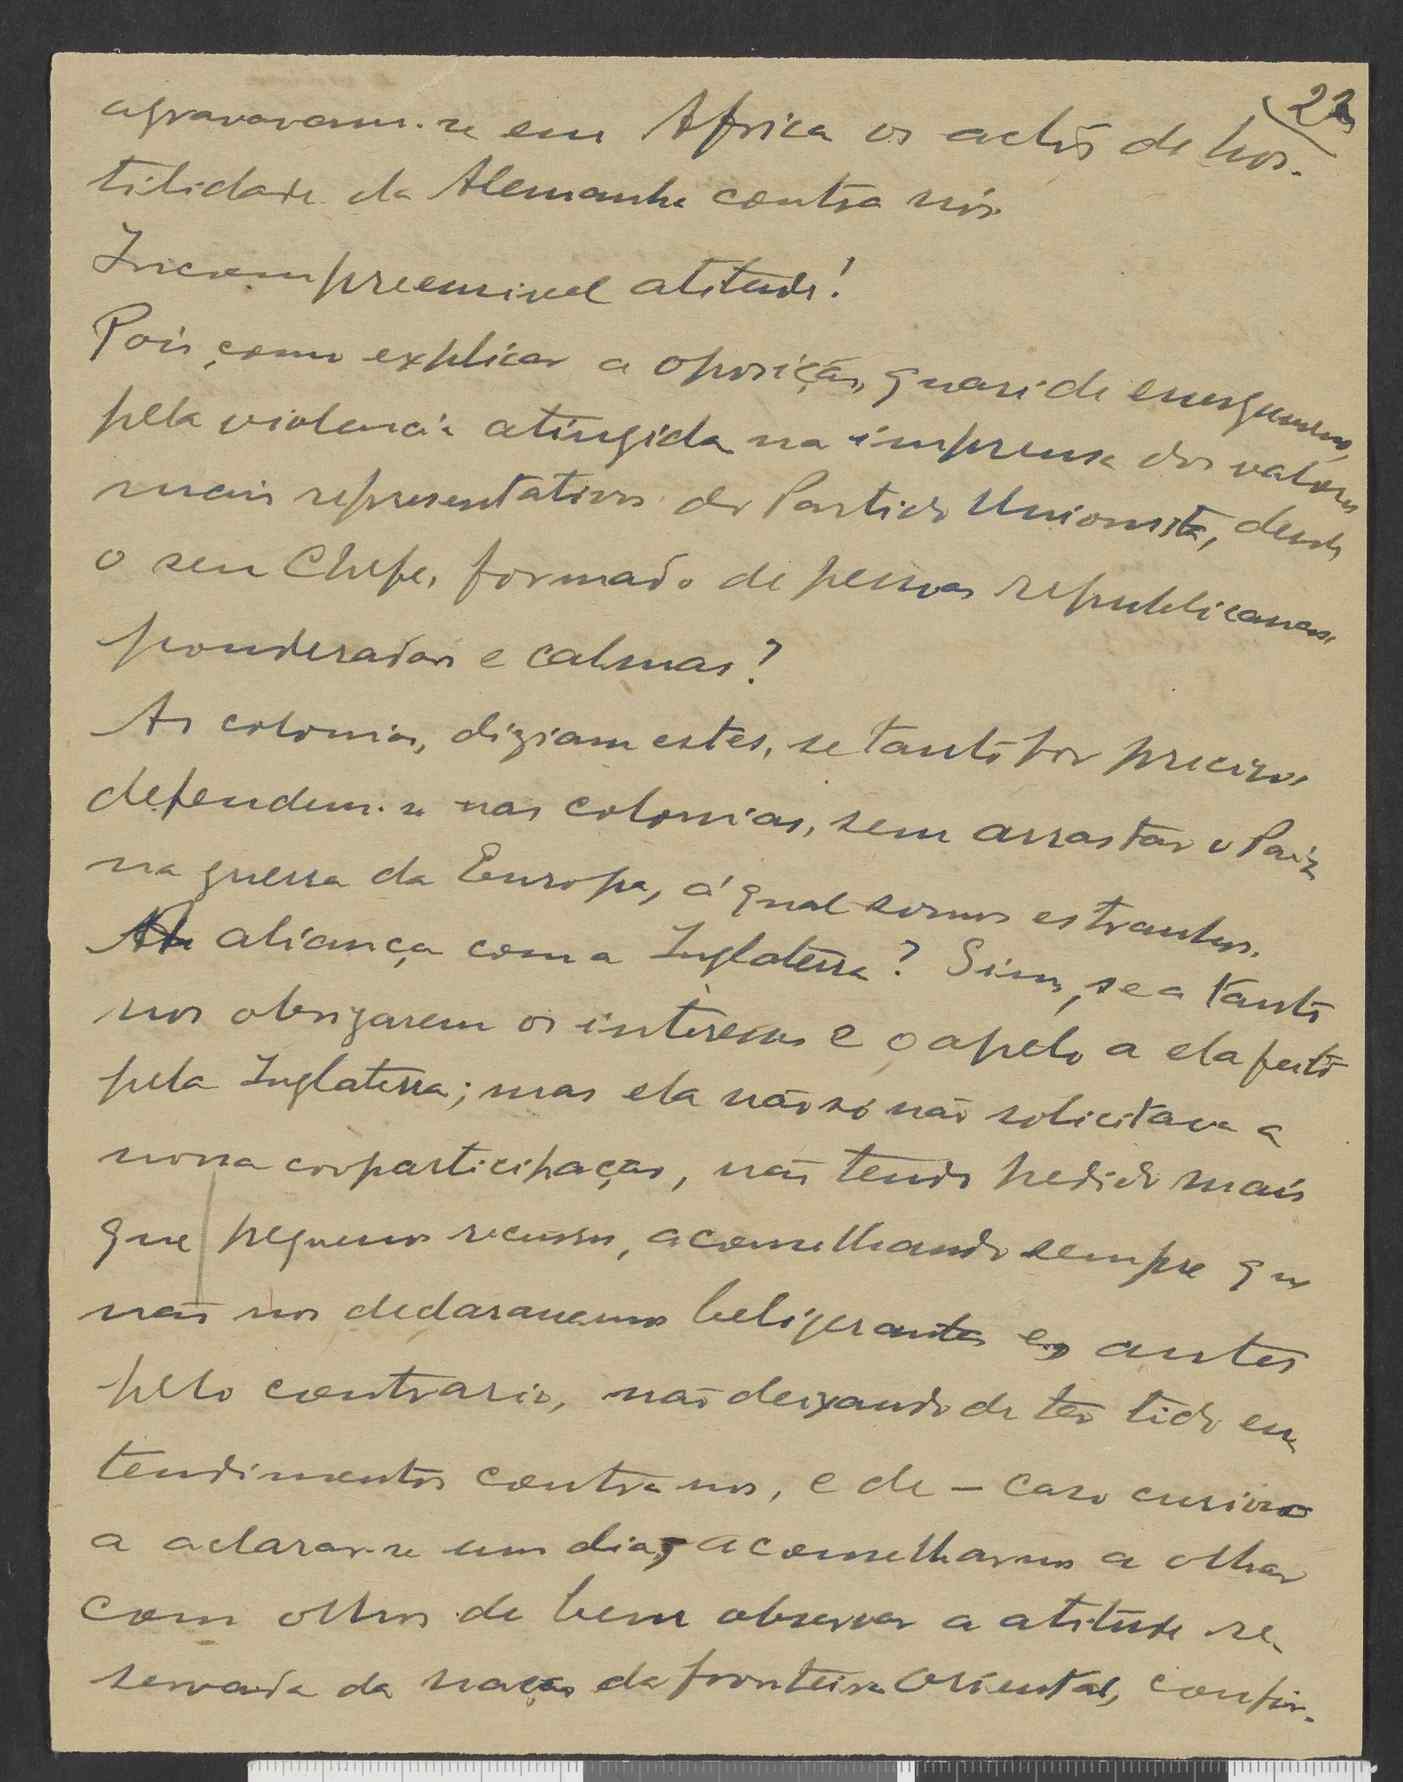 22
agravavam-se em Africa os actos de hos-
tilidade da Alemanha contra nós
Incompreensivel atitude!
Pois como explicar a oposição, quasi de energumenos,
pela violencia atingida na imprensa dos valores
mais representativos do Partido Unionista, desde
o seu Chefe, formado de pessoas republicanas,
ponderadas e calmas?
As colonias, diziam estes, se tanto fôr preciso,
defendem-se nas colonias, sem arrastar o Paiz
na guerra da Europa, á qual somos estranhos.
A aliança com a Inglaterra? Sim, se a tanto
nos obrigarem os interesses e o apelo a ela feito
pela Inglaterra; mas ela não só não solicitava a
nossa cooparticipação, não tendo pedido mais
que pequenos recursos, aconselhando sempre que
não nos declarassemos beligerantes e, antes
pelo contrario, não deixando de ter tido en
tendimentos contra nós, e de – caso curioso
a aclarar-se um dia, aconselhar-nos a olhar
com olhos de bem observar a atitude re-
servada da nação da fronteira Oriental, confir-